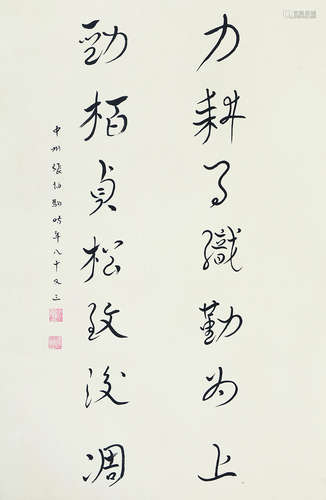 力耕織勤為上
勁柏貞松致後凋
中州張伯駒時年八十又三